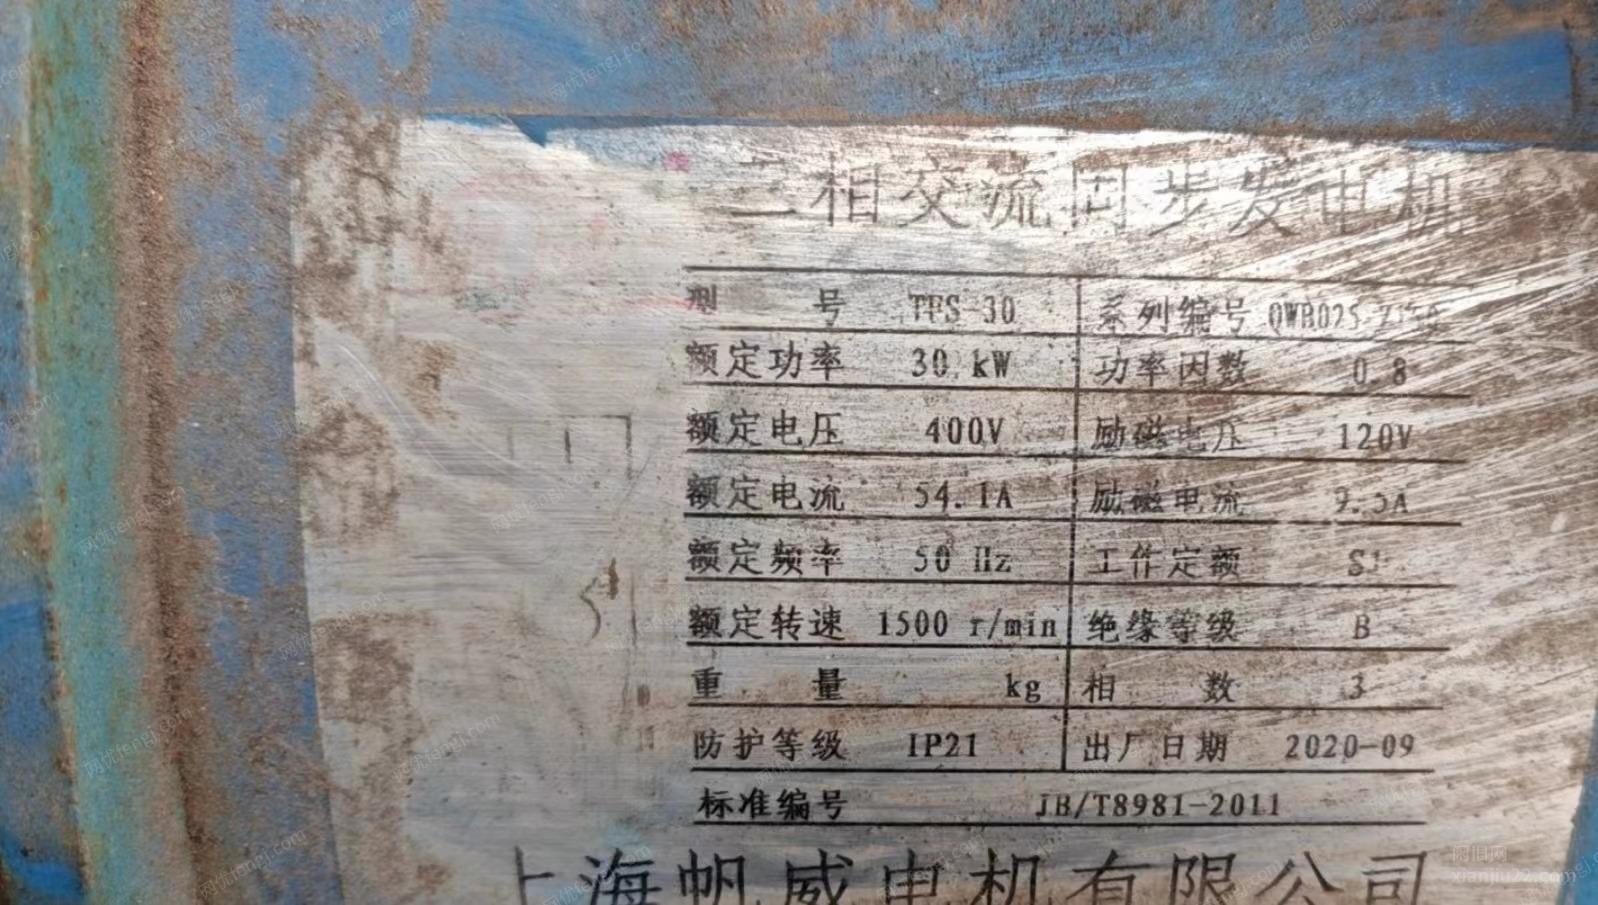 三相交流同步发电机
型 号 TFS-30 系列编号
额定功率 30 kW 功率因数 0.8
额定电压 400V 励磁电压 120V
额定电流 54.1A 励磁电流 9.5A
额定频率 50 Hz 工作定额 S1
额定转速 1500 r/min 绝缘等级 B
重 量 kg 相 数 3
防护等级 IP21 出厂日期 2020-09
标准编号 JB/T8981-2011
上海帆威电机有限公司
xianjiu22.com